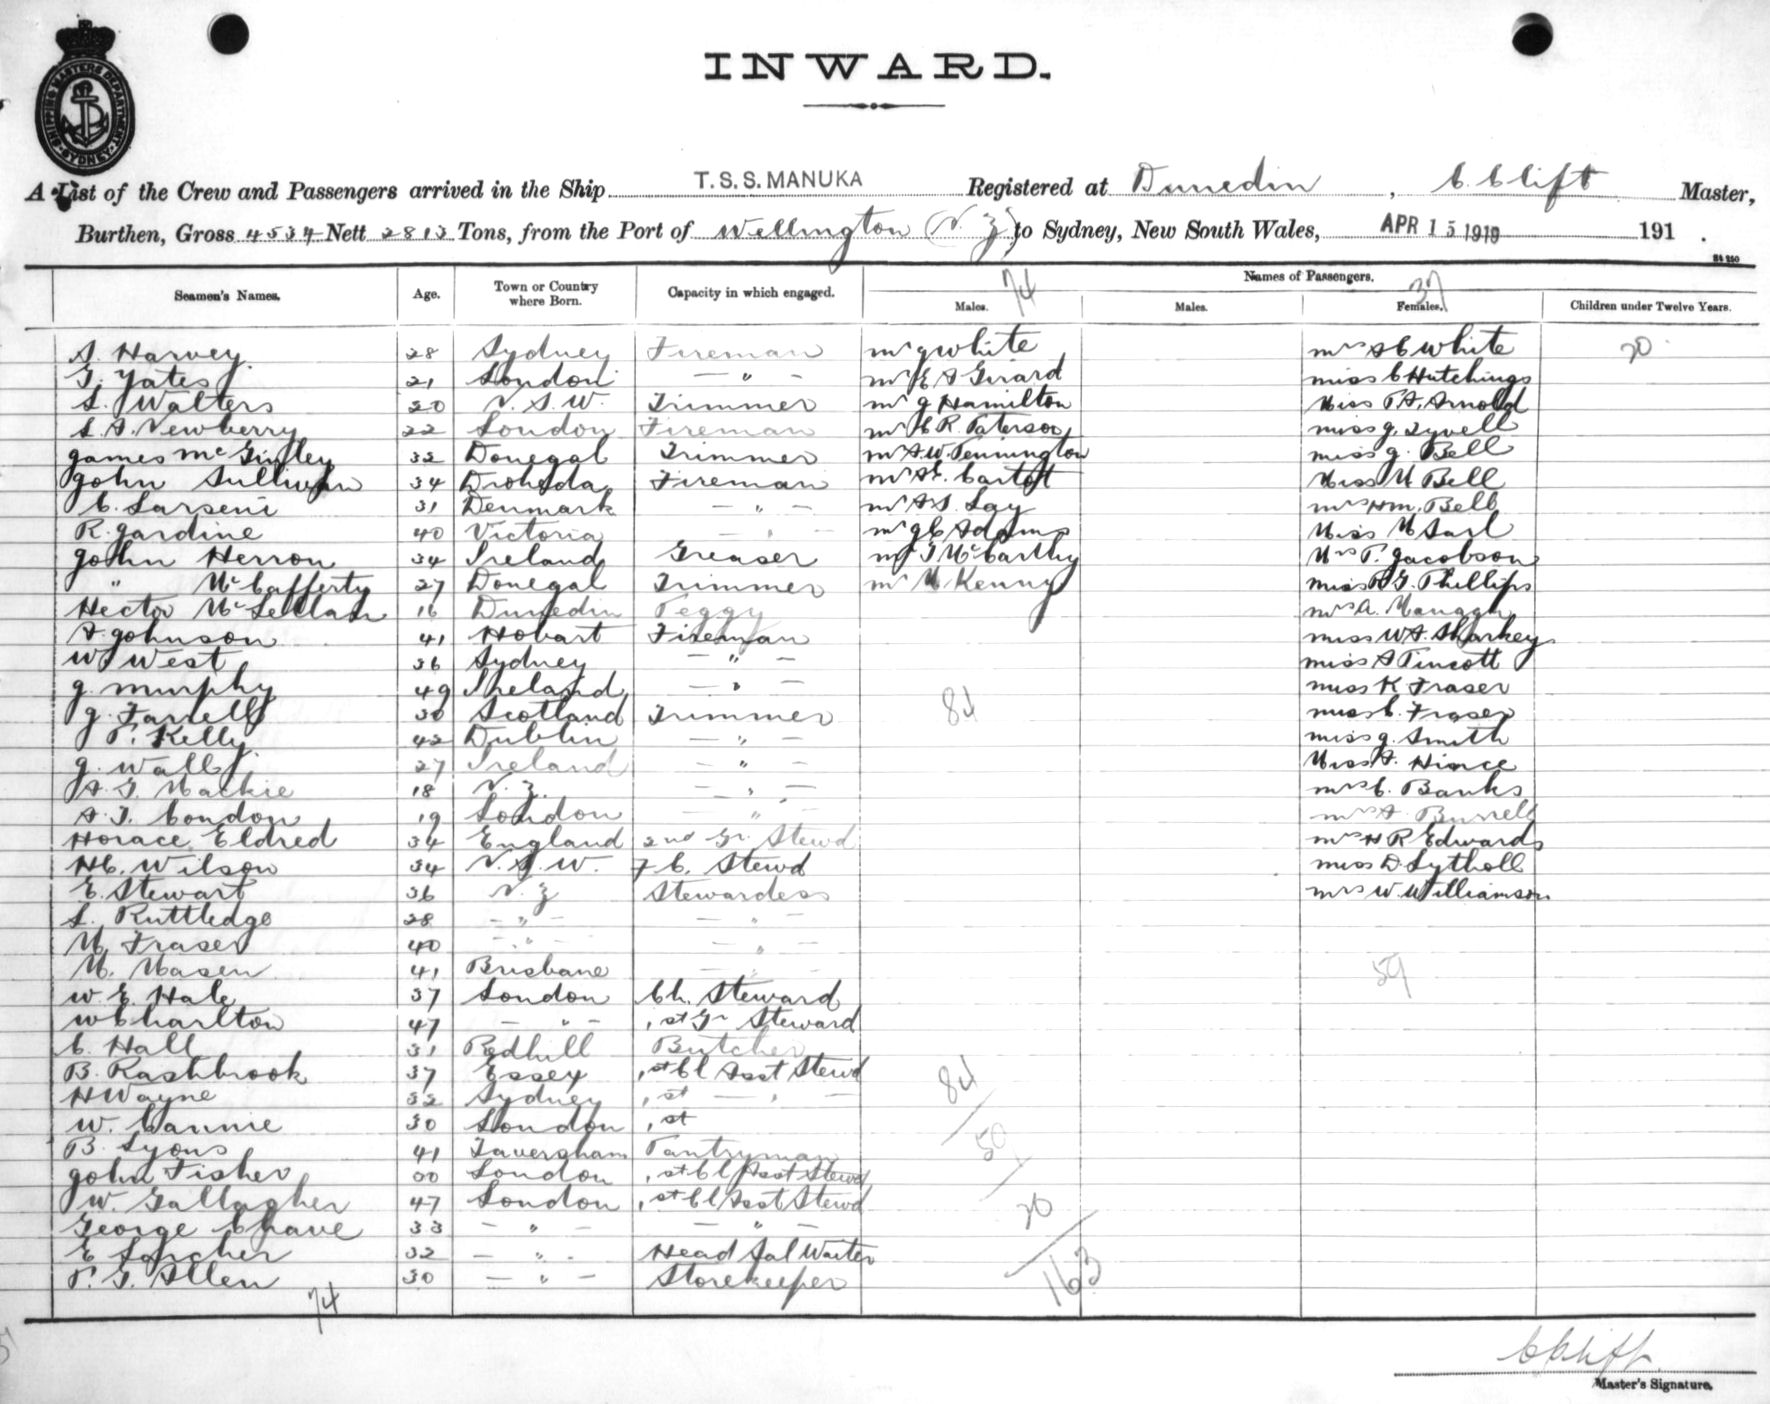 INWARD.
SHIPPING MASTERS DEPARTMENT SYDNEY
A List of the Crew and Passengers arrived in the Ship T.S.S. MANUKA Registered at Dunedin, C. Clift Master,
Burthen, Gross 4534 Nett 2813 Tons, from the Port of Wellington (N.Z) to Sydney, New South Wales, APR 15 1919 191 .
Names of Passengers.
Seamen's Names. Age. Town or Country where Born. Capacity in which engaged. Males. 74 Males. Females. 37 Children under Twelve Years.
A. Harvey 28 Sydney Fireman Mr J White Mrs A C White 20
G. Yates 21 London - " - Mr E A Girard Miss C Hutchings
S. Walters 20 N.S.W. Trimmer Mr J Hamilton Miss P.A. Arnold
S. A. Newberry 22 London Fireman Mr C R. Paterson Miss J. Tyrell
James McGinley 32 Donegal Trimmer Mr A.W. Pennington Miss J. Bell
John Sullivan 34 Drohgda Fireman Mr A E. Miss M Bell
C. Larseni 31 Denmark - " - Mr A S. Lay Mrs H M. Bell
R. Jardine 40 Victoria Mr J C Adams Miss M Earl
John Herron 34 Ireland Greaser Mr T McCarthy Mrs P. Jacobson
" McCafferty 27 Donegal Trimmer Mr M Kenny Miss G. Phillips
Hector McLellan 16 Dunedin Peggy Mrs A.
A. Johnson 41 Hobart Fireman Miss W A. Sharkey
W West 36 Sydney - " - Miss A Pincott
J. Murphy 49 Ireland - " - Miss K Fraser
J. Farrell 30 Scotland Trimmer 84 Miss C. Fraser
P. Kelly 42 Dublin - " - Miss J. Smith
J. Wall 27 Ireland - " - Miss A. Hince
A. G. Mackie 18 N.Z. - " - Mrs C. Banks
A. J. Condon 19 London - " - Mrs A Burrell
Horace Eldred 34 England 2nd Gr. Stewd Mrs H R Edwards
H C. Wilson 34 N.S.W. F C. Stewd Miss D. Lytholl
E. Stewart 36 N.Z Stewardess Mrs W. Williamson
L. Ruttledge 28 - " - - " -
M Fraser 40 - " - - " -
M. Masen 41 Brisbane - " - 59
W. E. Hale 37 London Ch. Steward
W Charlton 47 - " - 1st Gr Steward
C. Hall 31 Redhill Butcher
B. Rashbrook 37 Essex 1st Cl Asst Stewd 84
H Wayne 32 Sydney 1st - " -
W. Cannie 30 London 1st
B. Lyons 41 Faversham Pantryman 59
John Fisher 00 London 1st Cl Asst Stewd
W. Gallagher 47 London 1st Cl Asst Stewd 20
George Chave 33 - " - - " -
E Larcher 32 - " - Head Sal Waiter 163
P. G. Allen 30 - " - Storekeeper
74
C Clift
Master's Signature.